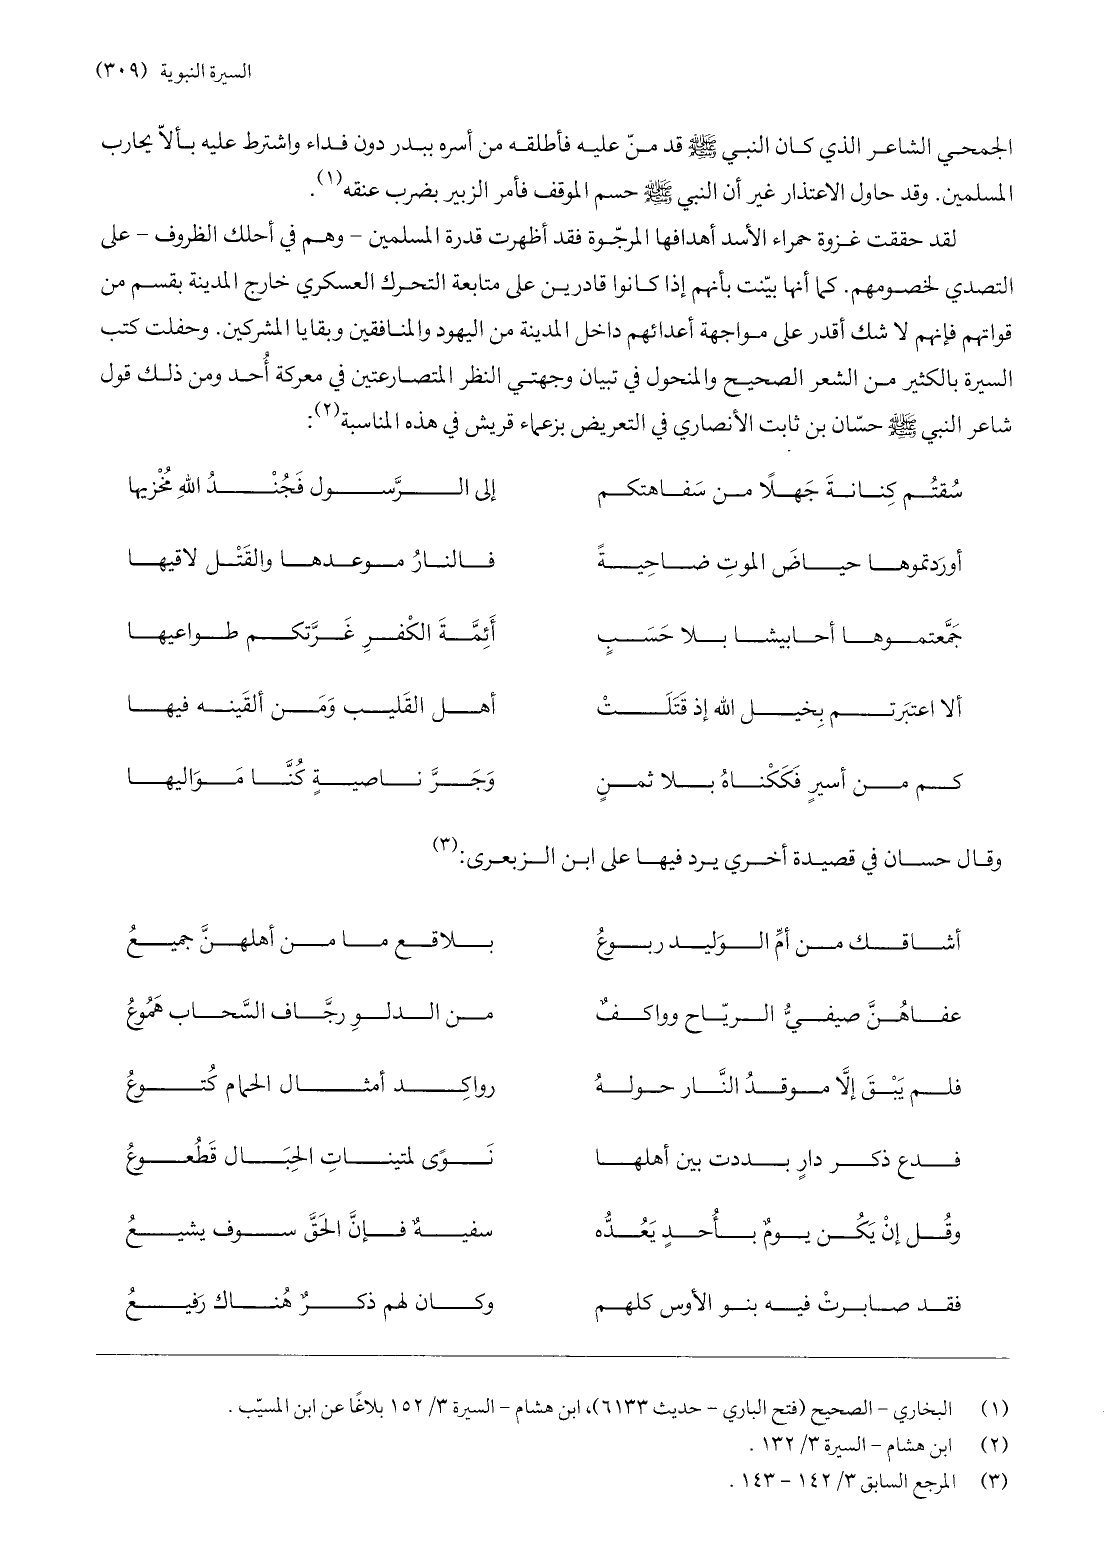 السيرة النبوية (٣٠٩)
الجمحي الشاعر الذي كان النبي ﷺ قد منّ عليه فأطلقه من أسره ببدر دون فداء واشترط عليه بألاّ يحارب
المسلمين. وقد حاول الاعتذار غير أن النبي ﷺ حسم الموقف فأمر الزبير بضرب عنقه(١).
لقد حققت غزوة حمراء الأسد أهدافها المرجّوة فقد أظهرت قدرة المسلمين - وهم في أحلك الظروف - على
التصدي لخصومهم. كما أنها بيّنت بأنهم إذا كانوا قادرين على متابعة التحرك العسكري خارج المدينة بقسم من
قواتهم فإنهم لا شك أقدر على مواجهة أعدائهم داخل المدينة من اليهود والمنافقين وبقايا المشركين. وحفلت كتب
السيرة بالكثير من الشعر الصحيح والمنحول في تبيان وجهتي النظر المتصارعتين في معركة أُحد ومن ذلك قول
شاعر النبي ﷺ حسّان بن ثابت الأنصاري في التعريض بزعماء قريش في هذه المناسبة(٢):
سُقتُم كِنانةَ جَهلًا من سَفاهتكم إلى الرَّسول فَجُنْدُ اللهِ مُخْزيها
أوردَتموها حياضَ الموتِ ضاحِيةً فالنارُ موعدها والقَتْل لاقيها
جَمَّعتموها أحابيشا بلا حَسَبٍ أَئِمَّةَ الكْفرِ غَرَّتكم طواعيها
ألا اعتبَرتم بِخيل الله إذ قَتَلَتْ أهل القَليب وَمَن ألقَينه فيها
كم من أسيرٍ فَكَكْناهُ بلا ثمنٍ وَجَرَّ ناصيةٍ كُنَّا مَوَاليها
وقال حسان في قصيدة أخري يرد فيها على ابن الزبعرى:(٣)
أشاقك من أمِّ الوَليد ربوعُ بلاقع ما من أهلهنَّ جميعُ
عفاهُنَّ صيفيُّ الريّاح وواكفٌ من الدلوِ رجَّاف السَّحاب هَمُوعُ
فلم يَبْقَ إلَّا موقدُ النَّار حولهُ رواكِد أمثال الحمام كُتوعُ
فدع ذكر دارٍ بددت بين أهلها نَوًى لمتيناتِ الحِبَال قَطُعوعُ
وقُل إنْ يَكُن يومٌ بأُحدٍ يَعُدُّه سفيهٌ فإنَّ الحَقَّ سوف يشيعُ
فقد صابرتْ فيه بنو الأوس كلهم وكان لهم ذكرٌ هُناك رَفيعُ
(١) البخاري - الصحيح (فتح الباري - حديث ٦١٣٣)، ابن هشام - السيرة ٣/ ١٥٢ بلاغًا عن ابن المسيّب .
(٢) ابن هشام - السيرة ٣/ ١٣٢ .
(٣) المرجع السابق ٣/ ١٤٢ - ١٤٣ .